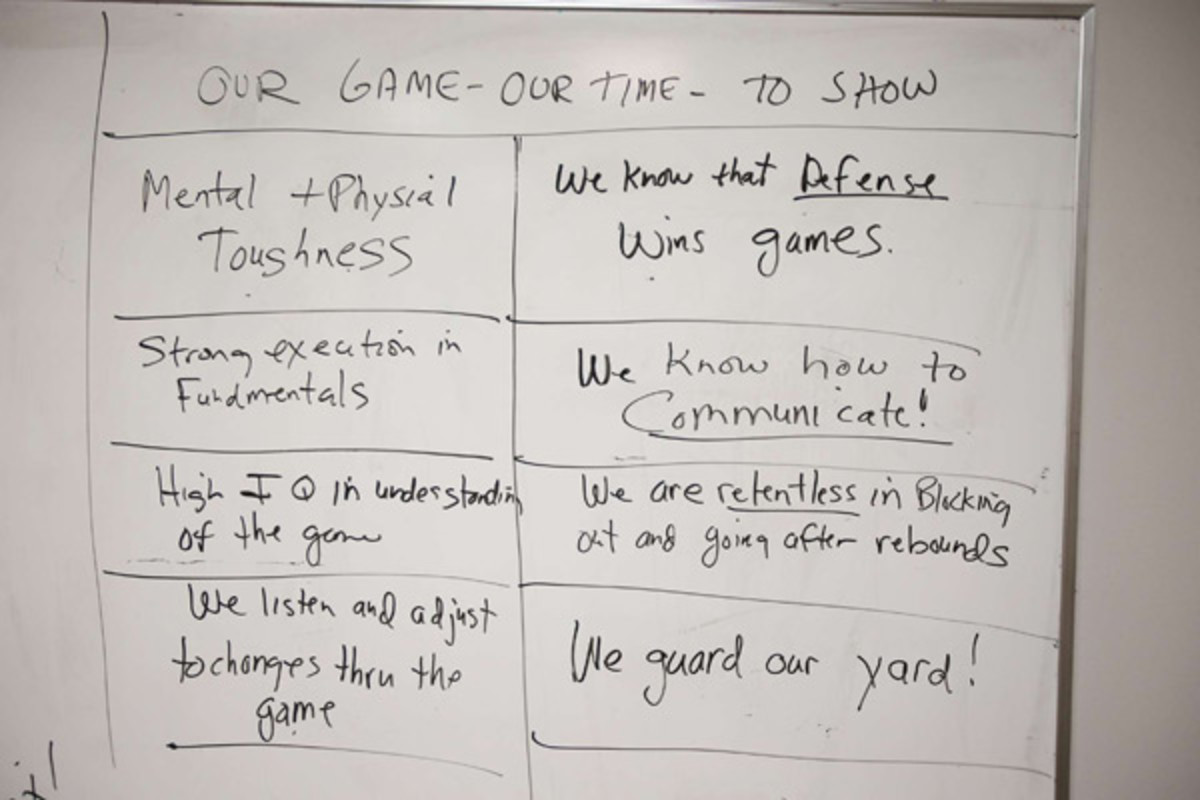 OUR GAME - OUR TIME - TO SHOW
Mental + Physial
Toughness
We know that Defense
Wins games.
Strong execution in
Fundmentals
We know how to
Communicate!
High IQ in understanding
of the game
We are retentless in Blocking
out and going after rebounds
We listen and adjust
to changes thru the
game
We guard our yard!